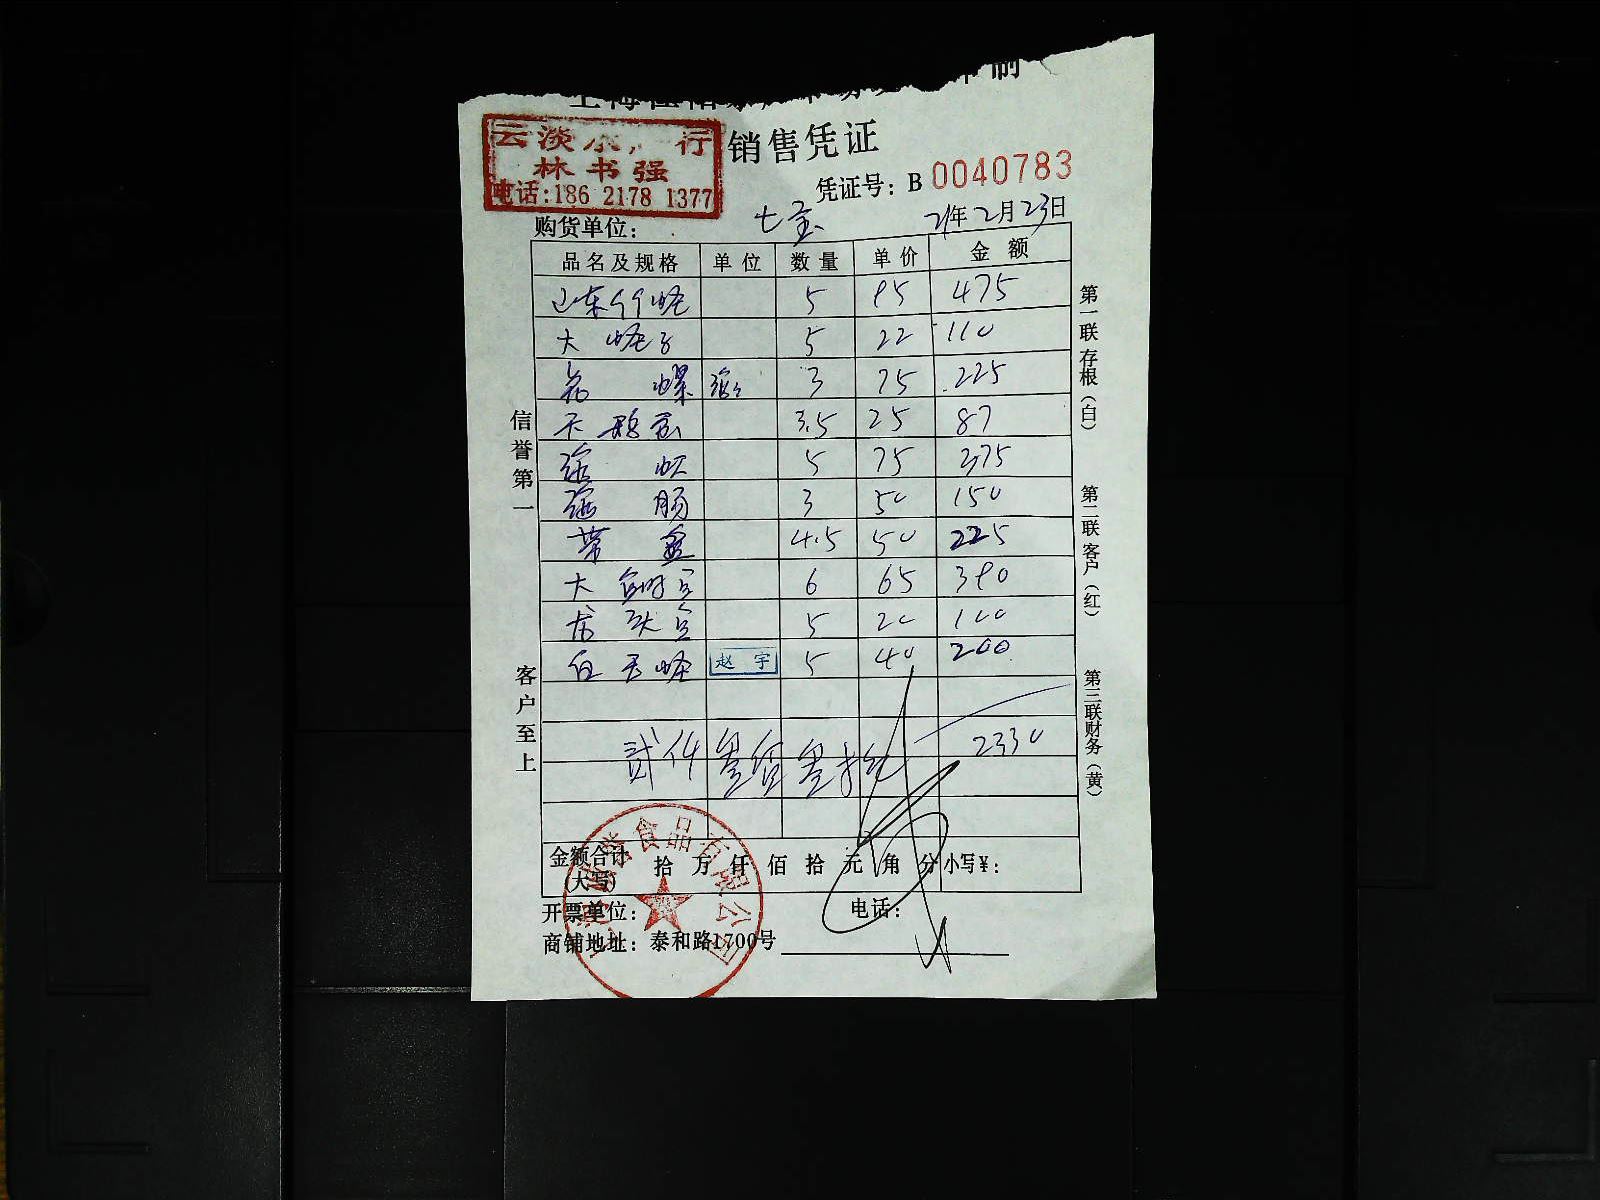 制
云淡水 行
林书强
电话:186 2178 1377
销售凭证
凭证号: B 0040783
购货单位: 七宝 21年2月23日
品名及规格 单位 数量 单价 金额
山东竹蛏 5 95 475
大蛏子 5 22 110
花螺 3 75 225
天鹅蛋 3.5 25 87
5 75 375
海肠 3 50 150
带鱼 4.5 50 225
大鲳鱼 6 65 390
龙头鱼 5 20 100
白玉蛏 赵宇 5 40 200
2330
贰仟叁佰叁拾元
金额合计(大写) 拾 万 仟 佰 拾 元 角 分 小写¥:
开票单位: 电话:
商铺地址: 泰和路1700号
食品有限公司
信誉第一
客户至上
第一联存根(白)
第二联客户(红)
第三联财务(黄)